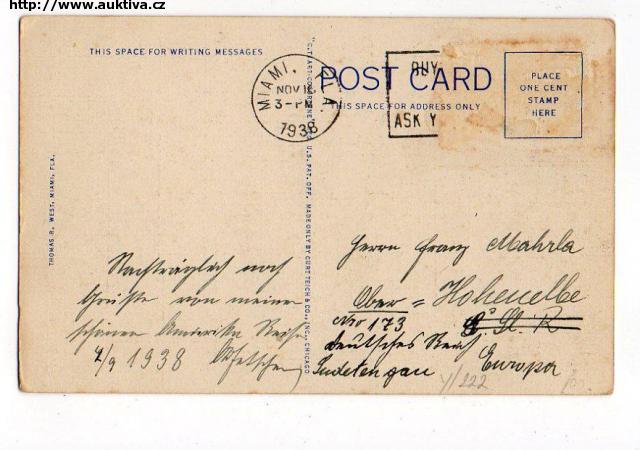 http://www.auktiva.cz
THIS SPACE FOR WRITING MESSAGES
POST CARD
THIS SPACE FOR ADDRESS ONLY
MIAMI, FLA.
NOV
3-PM
1938
BUY
ASK Y
PLACE
ONE CENT
STAMP
HERE
THOMAS R. WEST, MIAMI, FLA.
U.S. PAT. OFF. MADE ONLY BY CURT TEICH & CO., INC., CHICAGO
Nachträglich noch
Grüße von meiner
schönen Amerika Reise
1938
Herrn Franz Mahrla
Ober = Hohenelbe
No 173
Deutsches Reich
Sudetengau Europa